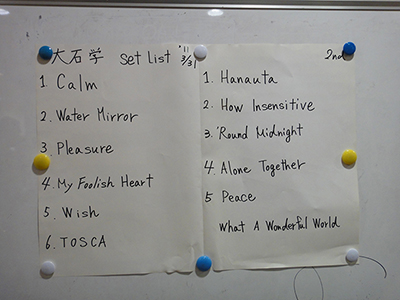 大石学 Set List '11 3/31
1. Calm
2. Water Mirror
3. Pleasure
4. My Foolish Heart
5. Wish
6. TOSCA
2nd
1. Hanauta
2. How Insensitive
3. 'Round Midnight
4. Alone Together
5 Peace
What A Wonderful World